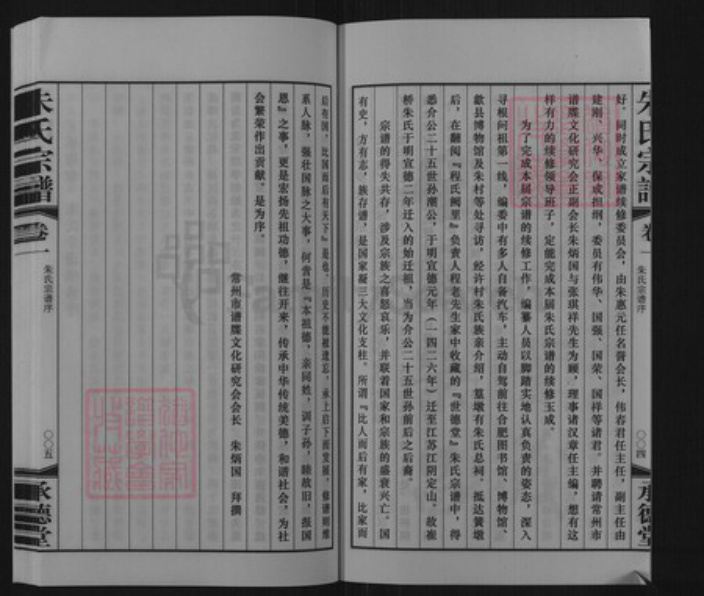 朱氏宗譜
卷一
朱氏宗谱序
〇〇四
承德堂
好。同时成立家谱续修委员会，由朱惠元任名誉会长，伟春君任主任，副主任由
建刚、兴华、保成担纲，委员有伟华、国强、国荣、国祥等诸君。并聘请常州市
谱牒文化研究会正副会长朱炳国与张琪祥先生为顾，理事诸汉章任主编，想有这
样有力的续修领导班子，定能完成本届朱氏宗谱的续修玉成。
为了完成本届宗谱的续修工作，编纂人员以脚踏实地认真负责的姿态，深入
寻根问祖第一线，编委中有多人自备汽车，主动自驾前往合肥图书馆、博物馆、
歙县博物馆及朱村等处寻访。经许村朱氏族亲介绍，篁墩有朱氏总祠。抵达篁墩
后，在翻阅『程氏阙里』负责人程老先生家中收藏的『世德堂』朱氏宗谱中，得
悉介公二十五世孙潮公，于明宣德元年（一四二六年）迁至江苏江阴定山。故崔
桥朱氏于明宣德二年迁入的始迁祖，当为介公二十五世孙前后之后裔。
宗谱的得失共存，涉及宗族之喜怒哀乐，并联着国家和宗族的盛衰兴亡。国
有史，方有志，族存谱，是国家凝三大文化支柱。所谓『比人而后有家，比家而
后有国，比国而后有天下』是也。历史不能被遗忘，承上启下而发展，修谱则维
系人脉，强壮国脉之大事，何尝是『本祖德，亲同姓，训子孙，睦故旧，报国
恩』之事，更是宏扬先祖功德，继往开来，传承中华传统美德，和谐社会，为社
会繁荣作出贡献。是为序。
常州市谱牒文化研究会会长　朱炳国　拜撰
朱氏宗譜
卷一
朱氏宗谱序
〇〇五
承德堂